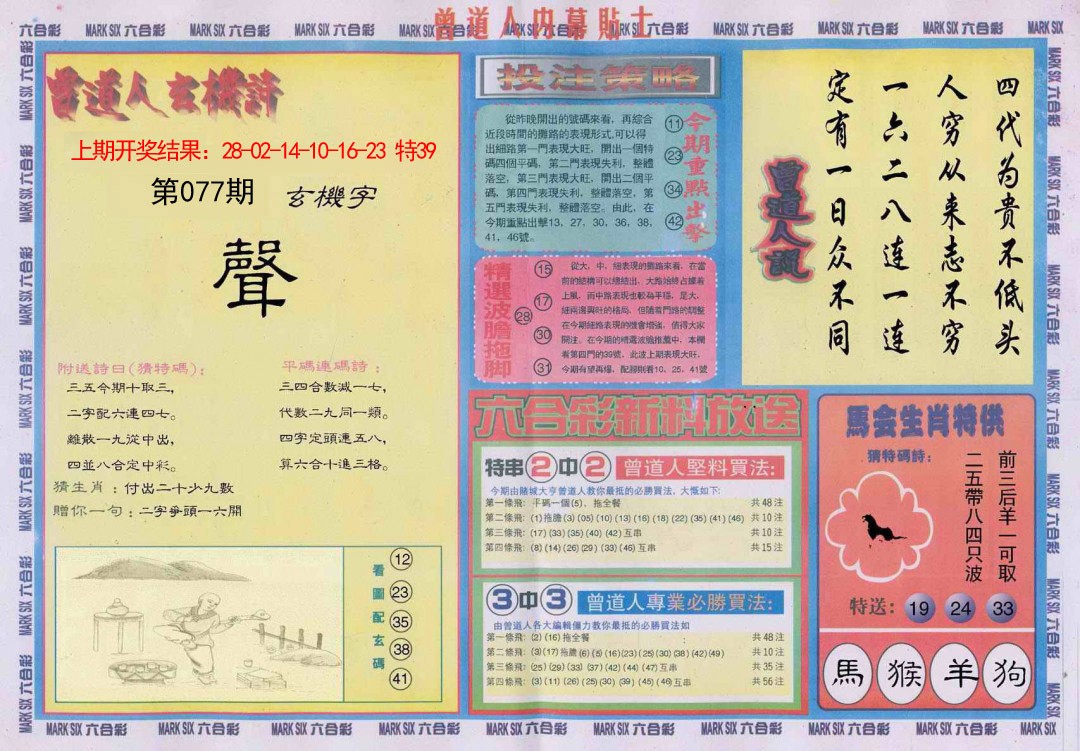 曾道人内幕貼士
MARK SIX 六合彩
曾道人玄機詩
上期开奖结果：28-02-14-10-16-23 特39
第077期 玄機字
聲
附送詩曰(猜特碼)：
三五今期十取三，
二字配六連四七。
離散一九從中出，
四並八合定中彩。
猜生肖：付出二十少九數
贈你一句：二字爭頭一六開
平碼連碼詩：
三四合數減一七，
代數二九同一類。
四字定頭連五八，
算六合十進三格。
看圖配玄碼
12
23
35
38
41
投注策略
從昨晚開出的號碼來看，再綜合
近段時間的攤路的表現形式,可以得
出細路第一門表現大旺，開出一個特
碼四個平碼，第二門表現失利，整體
落空，第三門表現大旺，開出二個平
碼，第四門表現失利，整體落空，第
五門表現失利，整體落空。由此，在
今期重點出擊13，27，30，36，38，
41，46號。
11
23
34
42
今期重點出擊
精選波膽拖脚
15
17
28
30
31
從大、中、細表現的攤路來看，在當
前的結構可以總結出，大路始終占據着
上風，而中路表現也較為平穩，是大、
細兩邊興旺的格局，但隨着門路的調整
在今期細路表現的機會增強，值得大家
關注，在今期的精選波膽推薦中，本欄
看第四門的39號，此波上期表現大旺，
今期有望再爆，配腳則看10、25、41號
六合彩新料放送
特串2中2 曾道人堅料買法：
今期由賭城大亨曾道人教你最抵的必勝買法，大概如下：
第一條飛：平碼一個(5)，拖全餐 共48注
第二條飛：(1)拖膽(3)(05)(10)(13)(16)(18)(22)(35)(41)(46) 共10注
第三條飛：(17)(33)(35)(40)(42)互串 共10注
第四條飛：(8)(14)(26)(29)(33)(46)互串 共15注
3中3 曾道人專業必勝買法：
由曾道人各大編輯傾力教你最抵的必勝買法如
第一條飛：(2)(16)拖全餐 共48注
第二條飛：(3)(17)拖膽(6)(5)(16)(23)(25)(30)(38)(42)(49) 共10注
第三條飛：(25)(29)(33)(37)(42)(44)(47)互串 共35注
第四條飛：(3)(11)(26)(25)(30)(39)(45)(46)互串 共56注
四代为贵不低头
人穷从来志不穷
一六二八连一连
定有一日众不同
曾道人說
馬会生肖特供
猜特碼詩：
前三后羊一可取
二五帶八四只波
特送：19 24 33
馬 猴 羊 狗
MARK SIX 六合彩